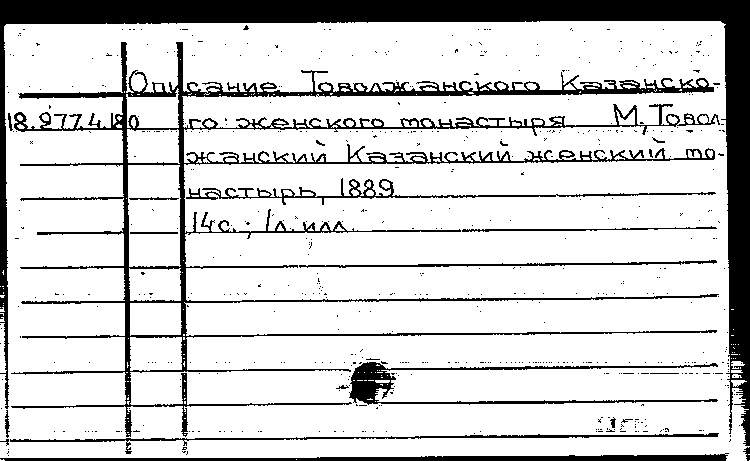 Описание Товолжанского Казанско-
18.277.4.180 го женского монастыря М, Товол-
жанский Казанский женский мо-
настырь, 1889
14с.; 1л. илл.